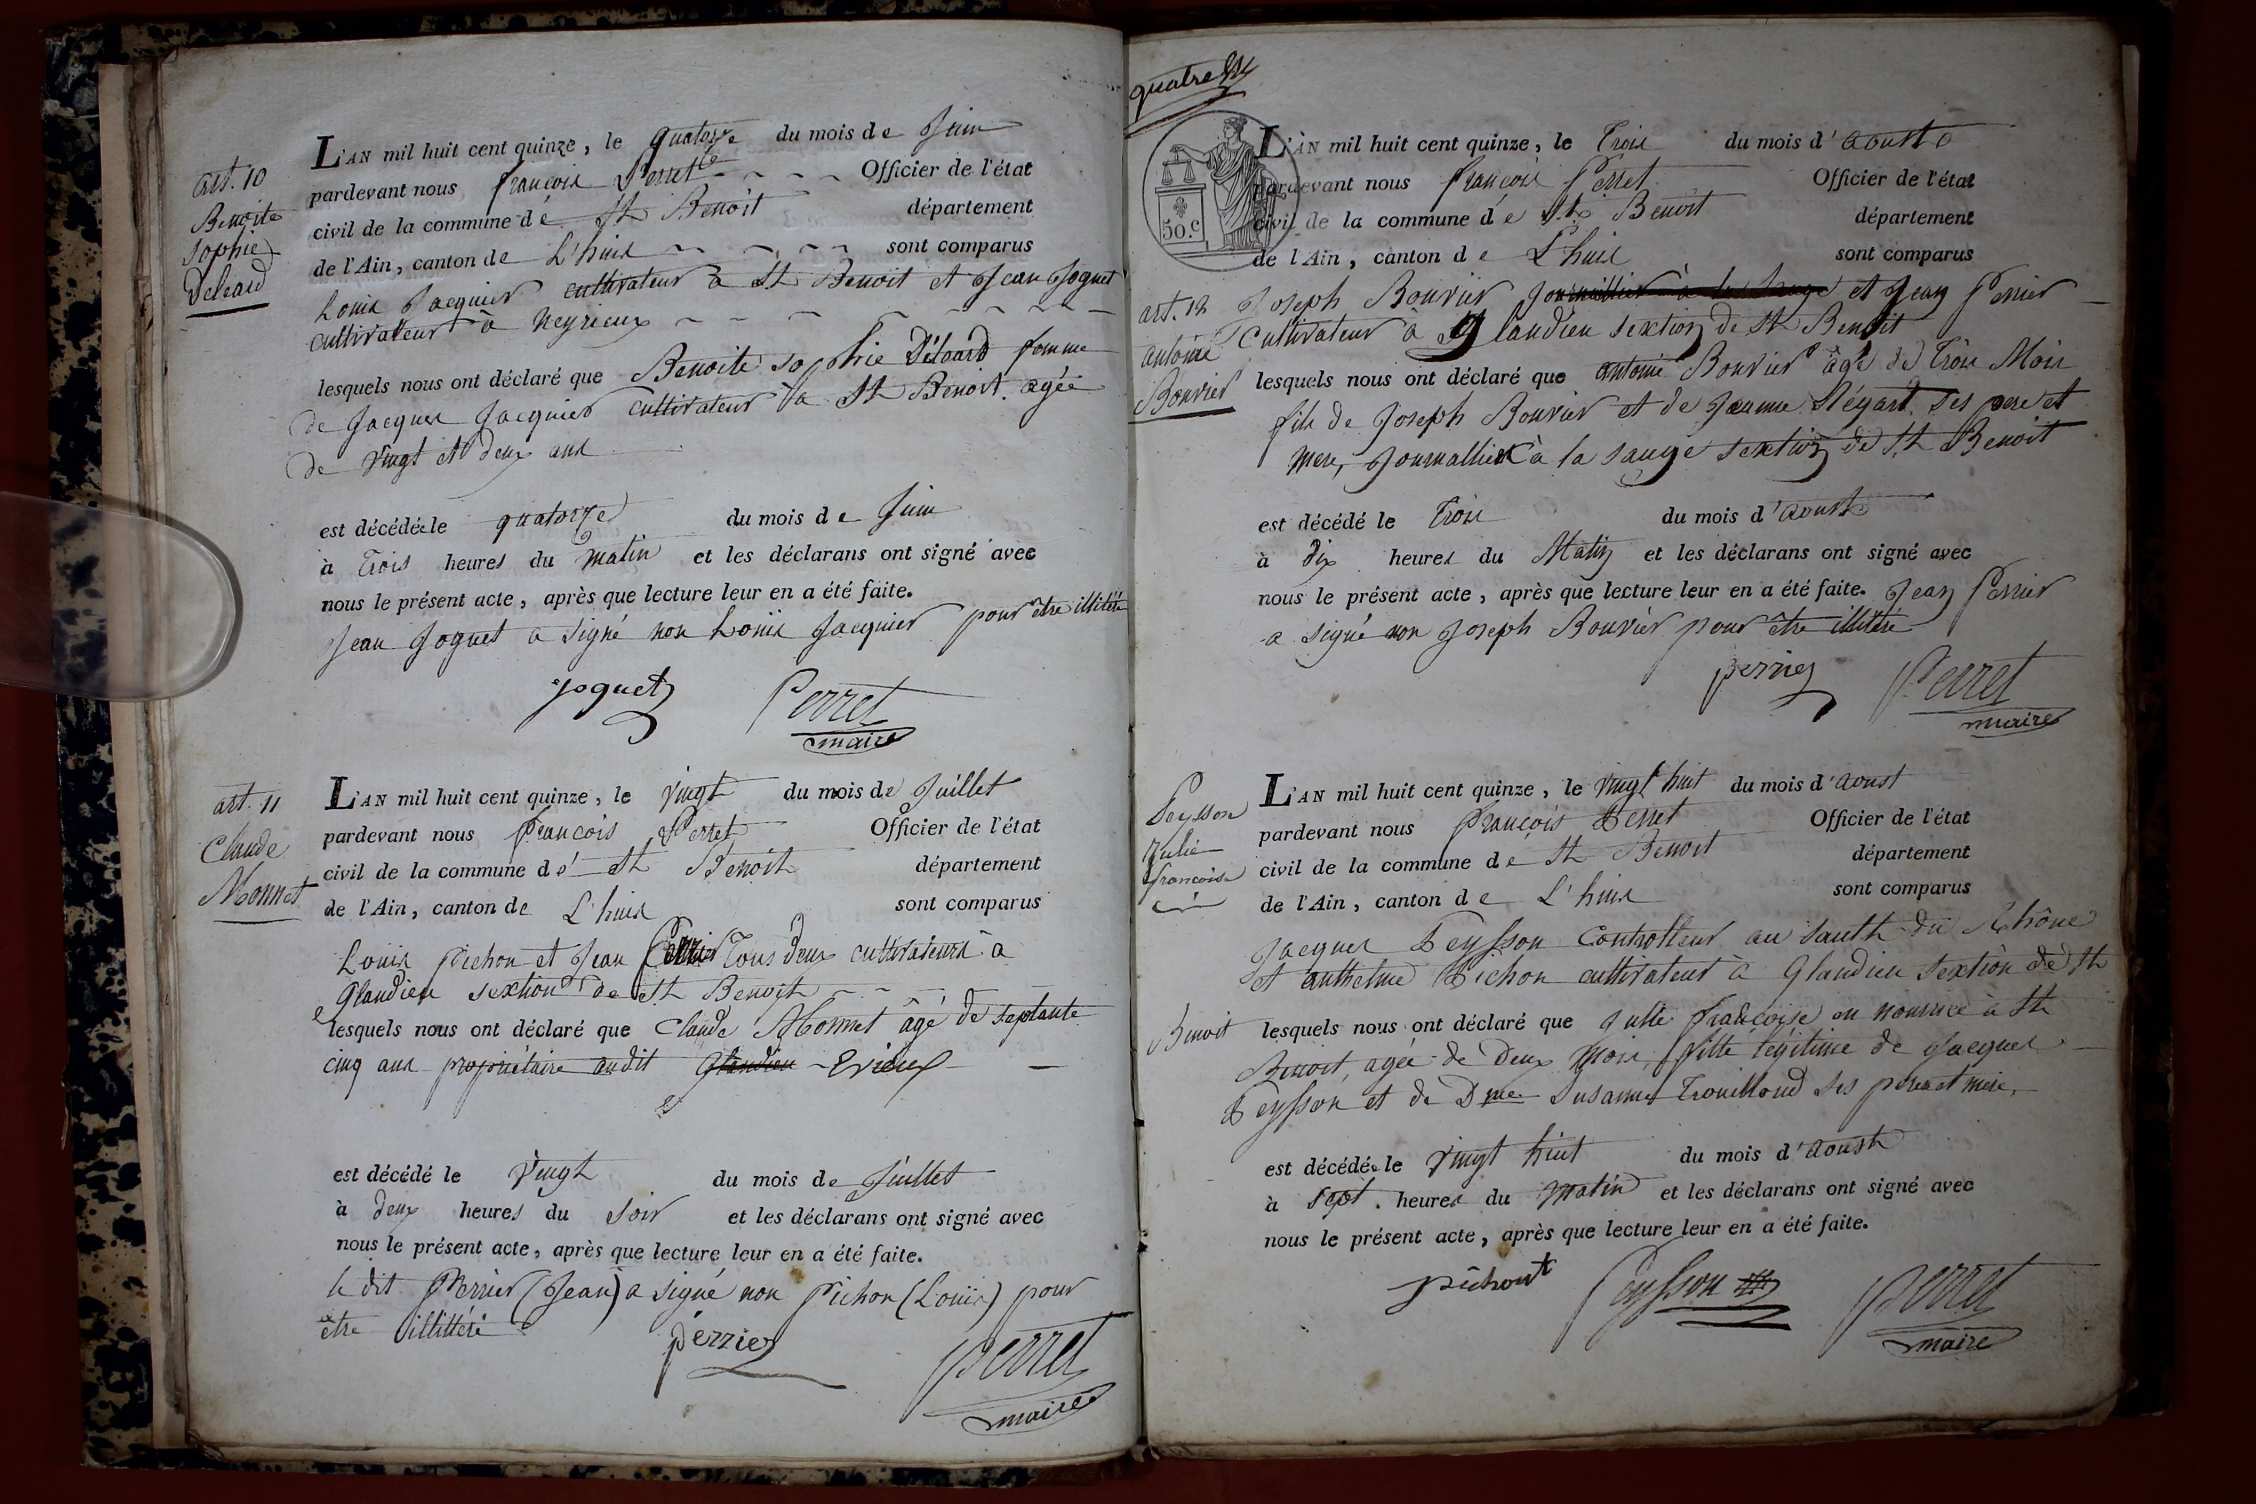 art. 10
Benoite
Sophie
Délzard
L'AN mil huit cent quinze, le quatorze du mois de Juin
pardevant nous françois Perret Officier de l'état
civil de la commune de St Benoit département
de l'Ain, canton de L'huix sont comparus
Louis Jacquier cultivateur à St Benoit et Jean Joguet
cultivateur à Neyrieux
lesquels nous ont déclaré que Benoite Sophie femme
de Jacques Jacquier cultivateur à St Benoit agée
de vingt et deux ans
est décédée le quatorze du mois de Juin
à Trois heures du matin et les déclarans ont signé avec
nous le présent acte, après que lecture leur en a été faite.
Jean Joguet a signé non Louis Jacquier pour être illitéré
joguet Perret
maire
art. 11
Claude
Monnet
L'AN mil huit cent quinze, le vingt du mois de Juillet
pardevant nous François Perret Officier de l'état
civil de la commune de St Benoit département
de l'Ain, canton de L'huix sont comparus
Louis pichon et Jean Perrier tous deux cultivateurs à
Glandieu sextion de St Benoit
lesquels nous ont déclaré que Claude Monnet âgé de septante
cinq ans propriétaire audit Glandieu Evieux
est décédé le Vingt du mois de Juillet
à deux heures du soir et les déclarans ont signé avec
nous le présent acte, après que lecture leur en a été faite.
le dit Perrier (Jean) a signé non Pichon (Louis) pour
être illitéré
perrier perret
maire
quatre
50.c
L'AN mil huit cent quinze, le Trois du mois d'aoust
pardevant nous françois Perret Officier de l'état
civil de la commune de St Benoit département
de l'Ain, canton de L'huix sont comparus
art. 12
antoine
Bouvier
Joseph Bouvier journallier à la Sauge et Jean Perrier
Cultivateur à Glandieu sextion de St Benoit
lesquels nous ont déclaré que antoine Bouvier agé de Trois Mois
fils de Joseph Bouvier et de Jeanne Ses pere et
mere, Journallier à la sauge sextion de St Benoit
est décédé le Trois du mois d'aoust
à dix heures du Matin et les déclarans ont signé avec
nous le présent acte, après que lecture leur en a été faite. Jean Perrier
a signé non Joseph Bouvier pour être illitéré
perrier Perret
maire
Peysson
Julie
françoise
L'AN mil huit cent quinze, le vingt huit du mois d'aoust
pardevant nous François Perret Officier de l'état
civil de la commune de St Benoit département
de l'Ain, canton de L'huix sont comparus
Jacques Peysson Controlleur au Sault du Rhône
et anthelme Pichon cultivateur à Glandieu sextion de St
Benoit lesquels nous ont déclaré que Julie françoise en nourrice à St
Benoit, agée de Deux Mois, fille légitime de Jacques
Peysson et de Dme Susanne Trouilloud Ses pere et mere,
est décédée le vingt huit du mois d'aoust
à sept heures du matin et les déclarans ont signé avec
nous le présent acte, après que lecture leur en a été faite.
pichont Peysson Perret
maire